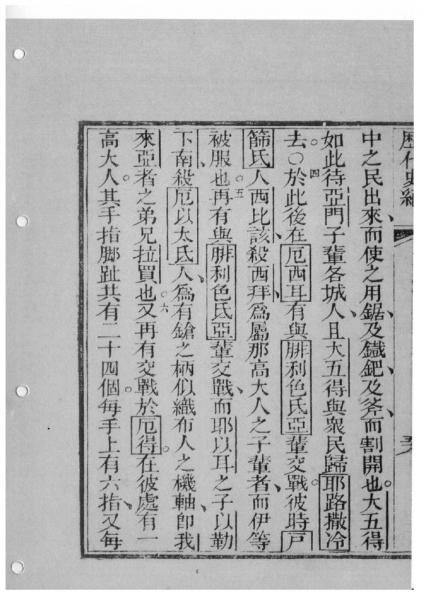 歷代史
中之民出來、而使之用鋸及鐡鈀及斧而割開也。大五得
如此待亞門子輩各城人、且大五得與衆民歸耶路撒冷
去。○四於此後在厄西耳有與腓利色氏亞輩交戰。彼時戸
篩氏人西比該殺西拜、爲屬那高大人之子輩者、而伊等
被服也。五再有與腓利色氏亞輩交戰、而耶以耳之子以勒
下南殺厄以太氏人、爲有鎗之柄似織布人之機軸卽我
來亞者之弟兄拉買也。六又再有交戰於厄得。在彼處有一
高大人。其手指脚趾共有二十四個。每手上有六指、又每